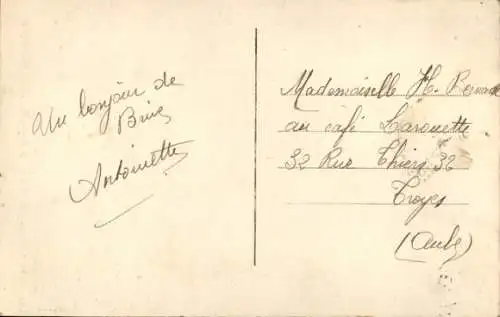 Un bonjour de
Brive
Antoinette
Mademoiselle H.
au café Larouette
32 Rue Thiers 32
Troyes
(Aube)